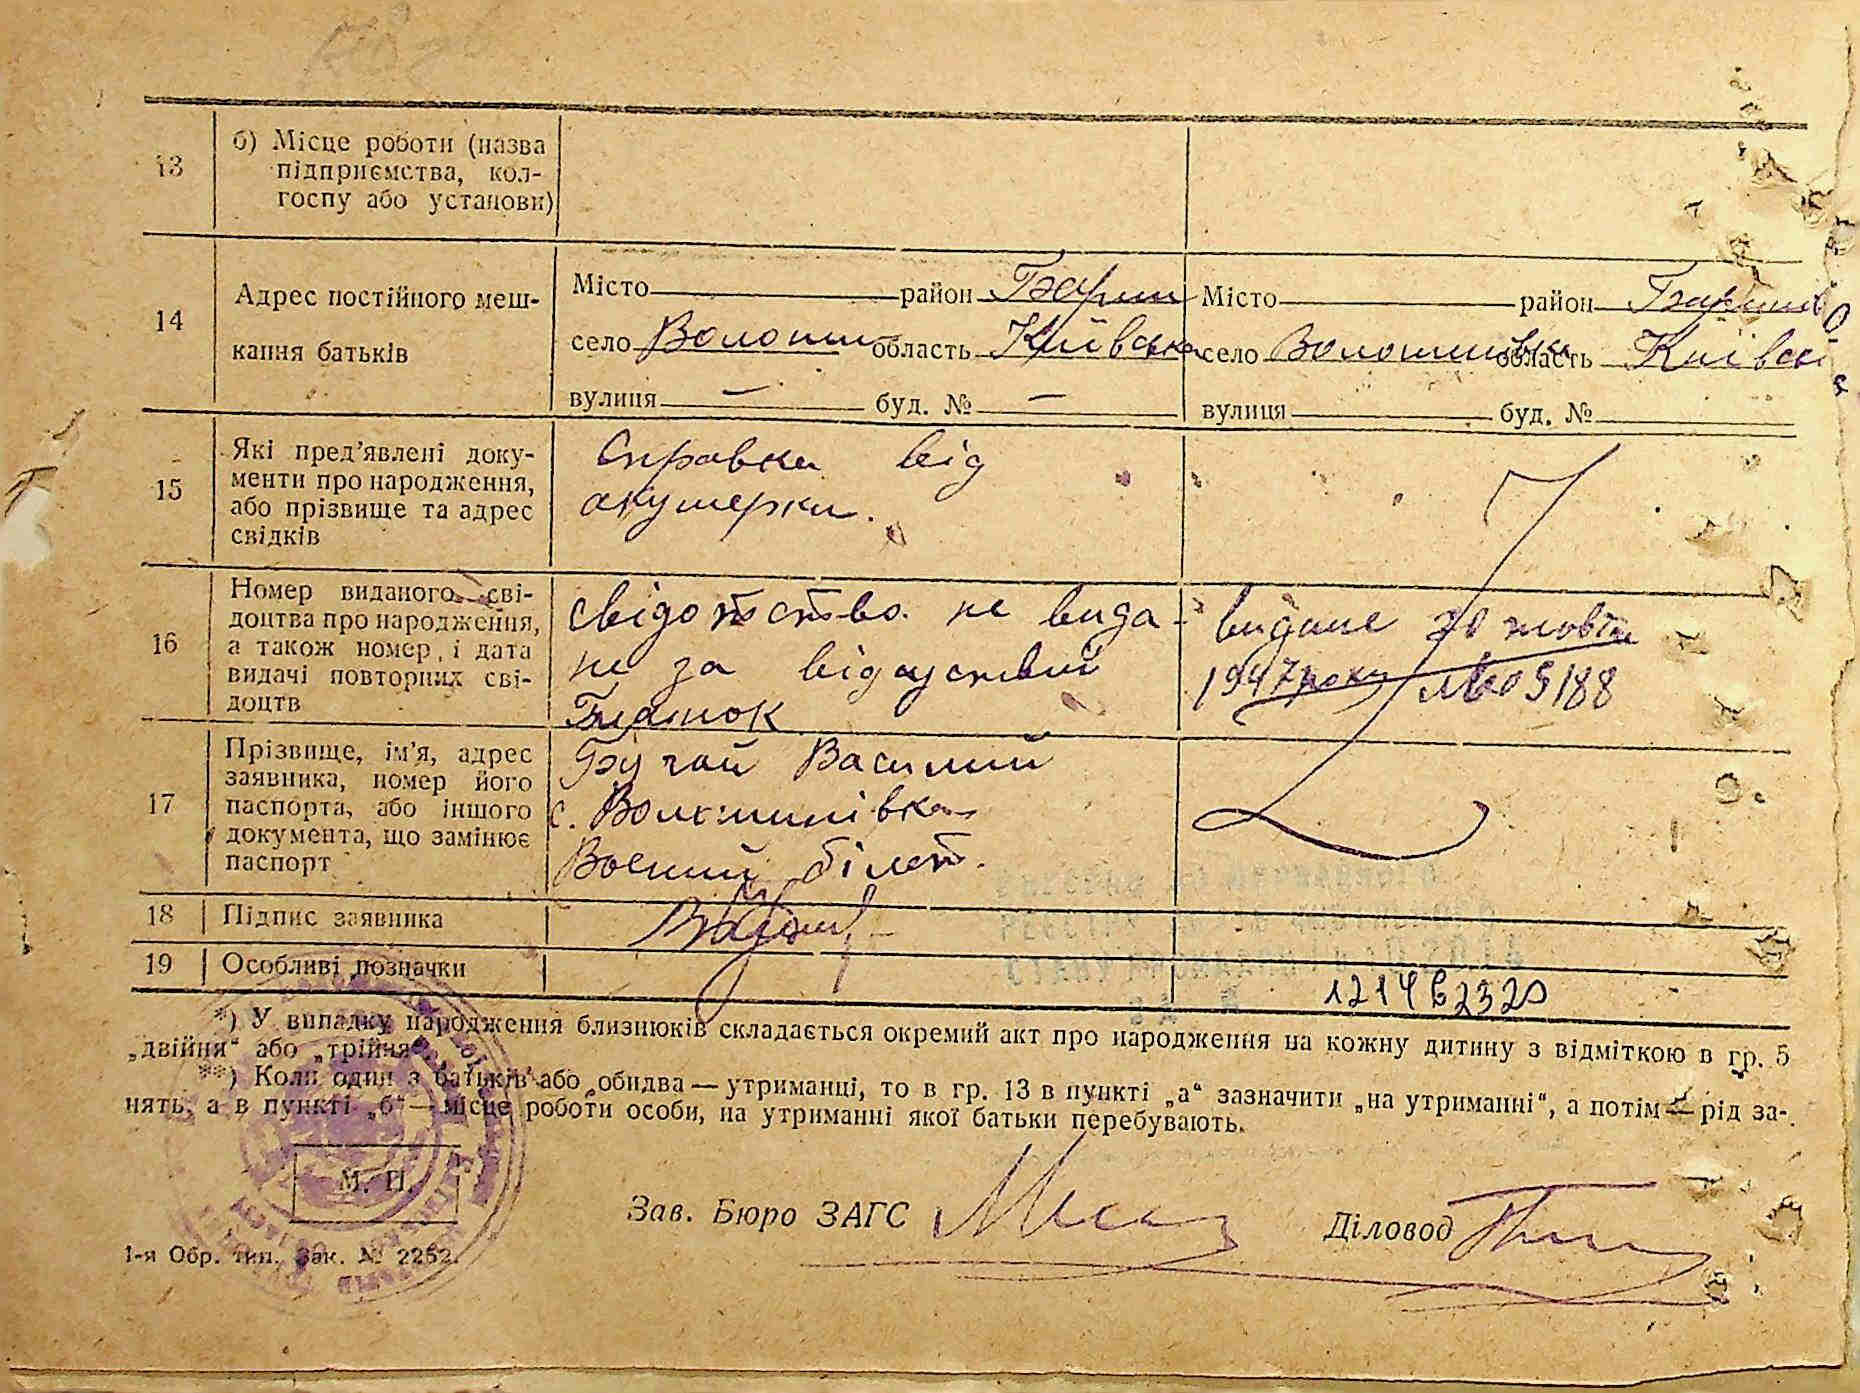 13
б) Місце роботи (назва
підприємства, кол-
госпу або установи)
14
Адрес постійного меш-
кання батьків
Місто район Бариш
село Волошин область Київська
вулиця — буд. № —
Місто район Баришів
село Волошинівка область Київсь
вулиця буд. №
15
Які пред’явлені доку-
менти про народження,
або прізвище та адрес
свідків
Справка від
акушерки.
16
Номер виданого сві-
доцтва про народження,
а також номер і дата
видачі повторних сві-
доцтв
свідотство не вида-
не за відсутствий
Бланок
видане 20 жовтн
1947 року № 05188
17
Прізвище, ім’я, адрес
заявника, номер його
паспорта, або іншого
документа, що замінює
паспорт
Бугай Василий
с. Волошинівка
Воений білет.
18
Підпис заявника
19
Особливі позначки
*) У випадку народження близнюків складається окремий акт про народження на кожну дитину з відміткою в гр. 5
„двійня“ або „трійня“.
**) Коли один з батьків або обидва — утриманці, то в гр. 13 в пункті „а“ зазначити „на утриманні“, а потім — рід за-
нять, а в пункті „б“ — місце роботи особи, на утриманні якої батьки перебувають.
М. П.
Зав. Бюро ЗАГС
Діловод
1-я Обр. тип. Зак. № 2252.